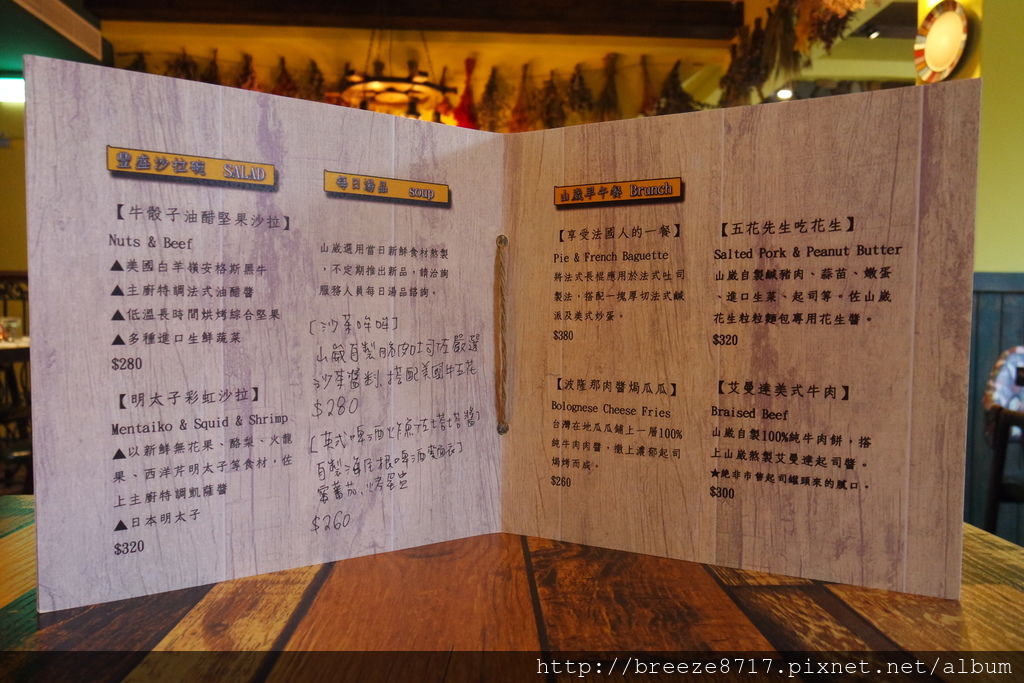 豐盛沙拉碗 SALAD
【牛骰子油醋堅果沙拉】
Nuts & Beef
▲美國白羊嶺安格斯黑牛
▲主廚特調法式油醋醬
▲低溫長時間烘烤綜合堅果
▲多種進口生鮮蔬菜
$280
【明太子彩虹沙拉】
Mentaiko & Squid & Shrimp
▲以新鮮無花果、酪梨、火龍
果、西洋芹明太子等食材，佐
上主廚特調凱薩醬
▲日本明太子
$320
每日湯品 soup
山崴選用當日新鮮食材熬製
，不定期推出新品，請洽詢
服務人員每日湯品諮詢。
[沙茶哞哞]
山崴自製脆皮吐司佐嚴選
沙茶醬料、搭配美國牛五花
$280
[英式啤酒炸魚佐塔塔醬]
自製海尼根啤酒麵衣
蜜蕃茄、烤蛋
$260
山崴早午餐 Brunch
【享受法國人的一餐】
Pie & French Baguette
將法式長棍應用於法式吐司
製法，搭配一塊厚切法式鹹
派及美式炒蛋。
$380
【波隆那肉醬焗瓜瓜】
Bolognese Cheese Fries
台灣在地瓜瓜鋪上一層100%
純牛肉肉醬，撒上濃郁起司
焗烤而成。
$260
【五花先生吃花生】
Salted Pork & Peanut Butter
山崴自製鹹豬肉、蒜苗、嫩蛋
、進口生菜、起司等。佐山崴
花生粒粒麵包專用花生醬。
$320
【艾曼達美式牛肉】
Braised Beef
山崴自製100%純牛肉餅，搭
上山崴熬製艾曼達起司醬。
★絕非市售起司罐頭來的膩口。
$300
http://breeze8717.pixnet.net/album